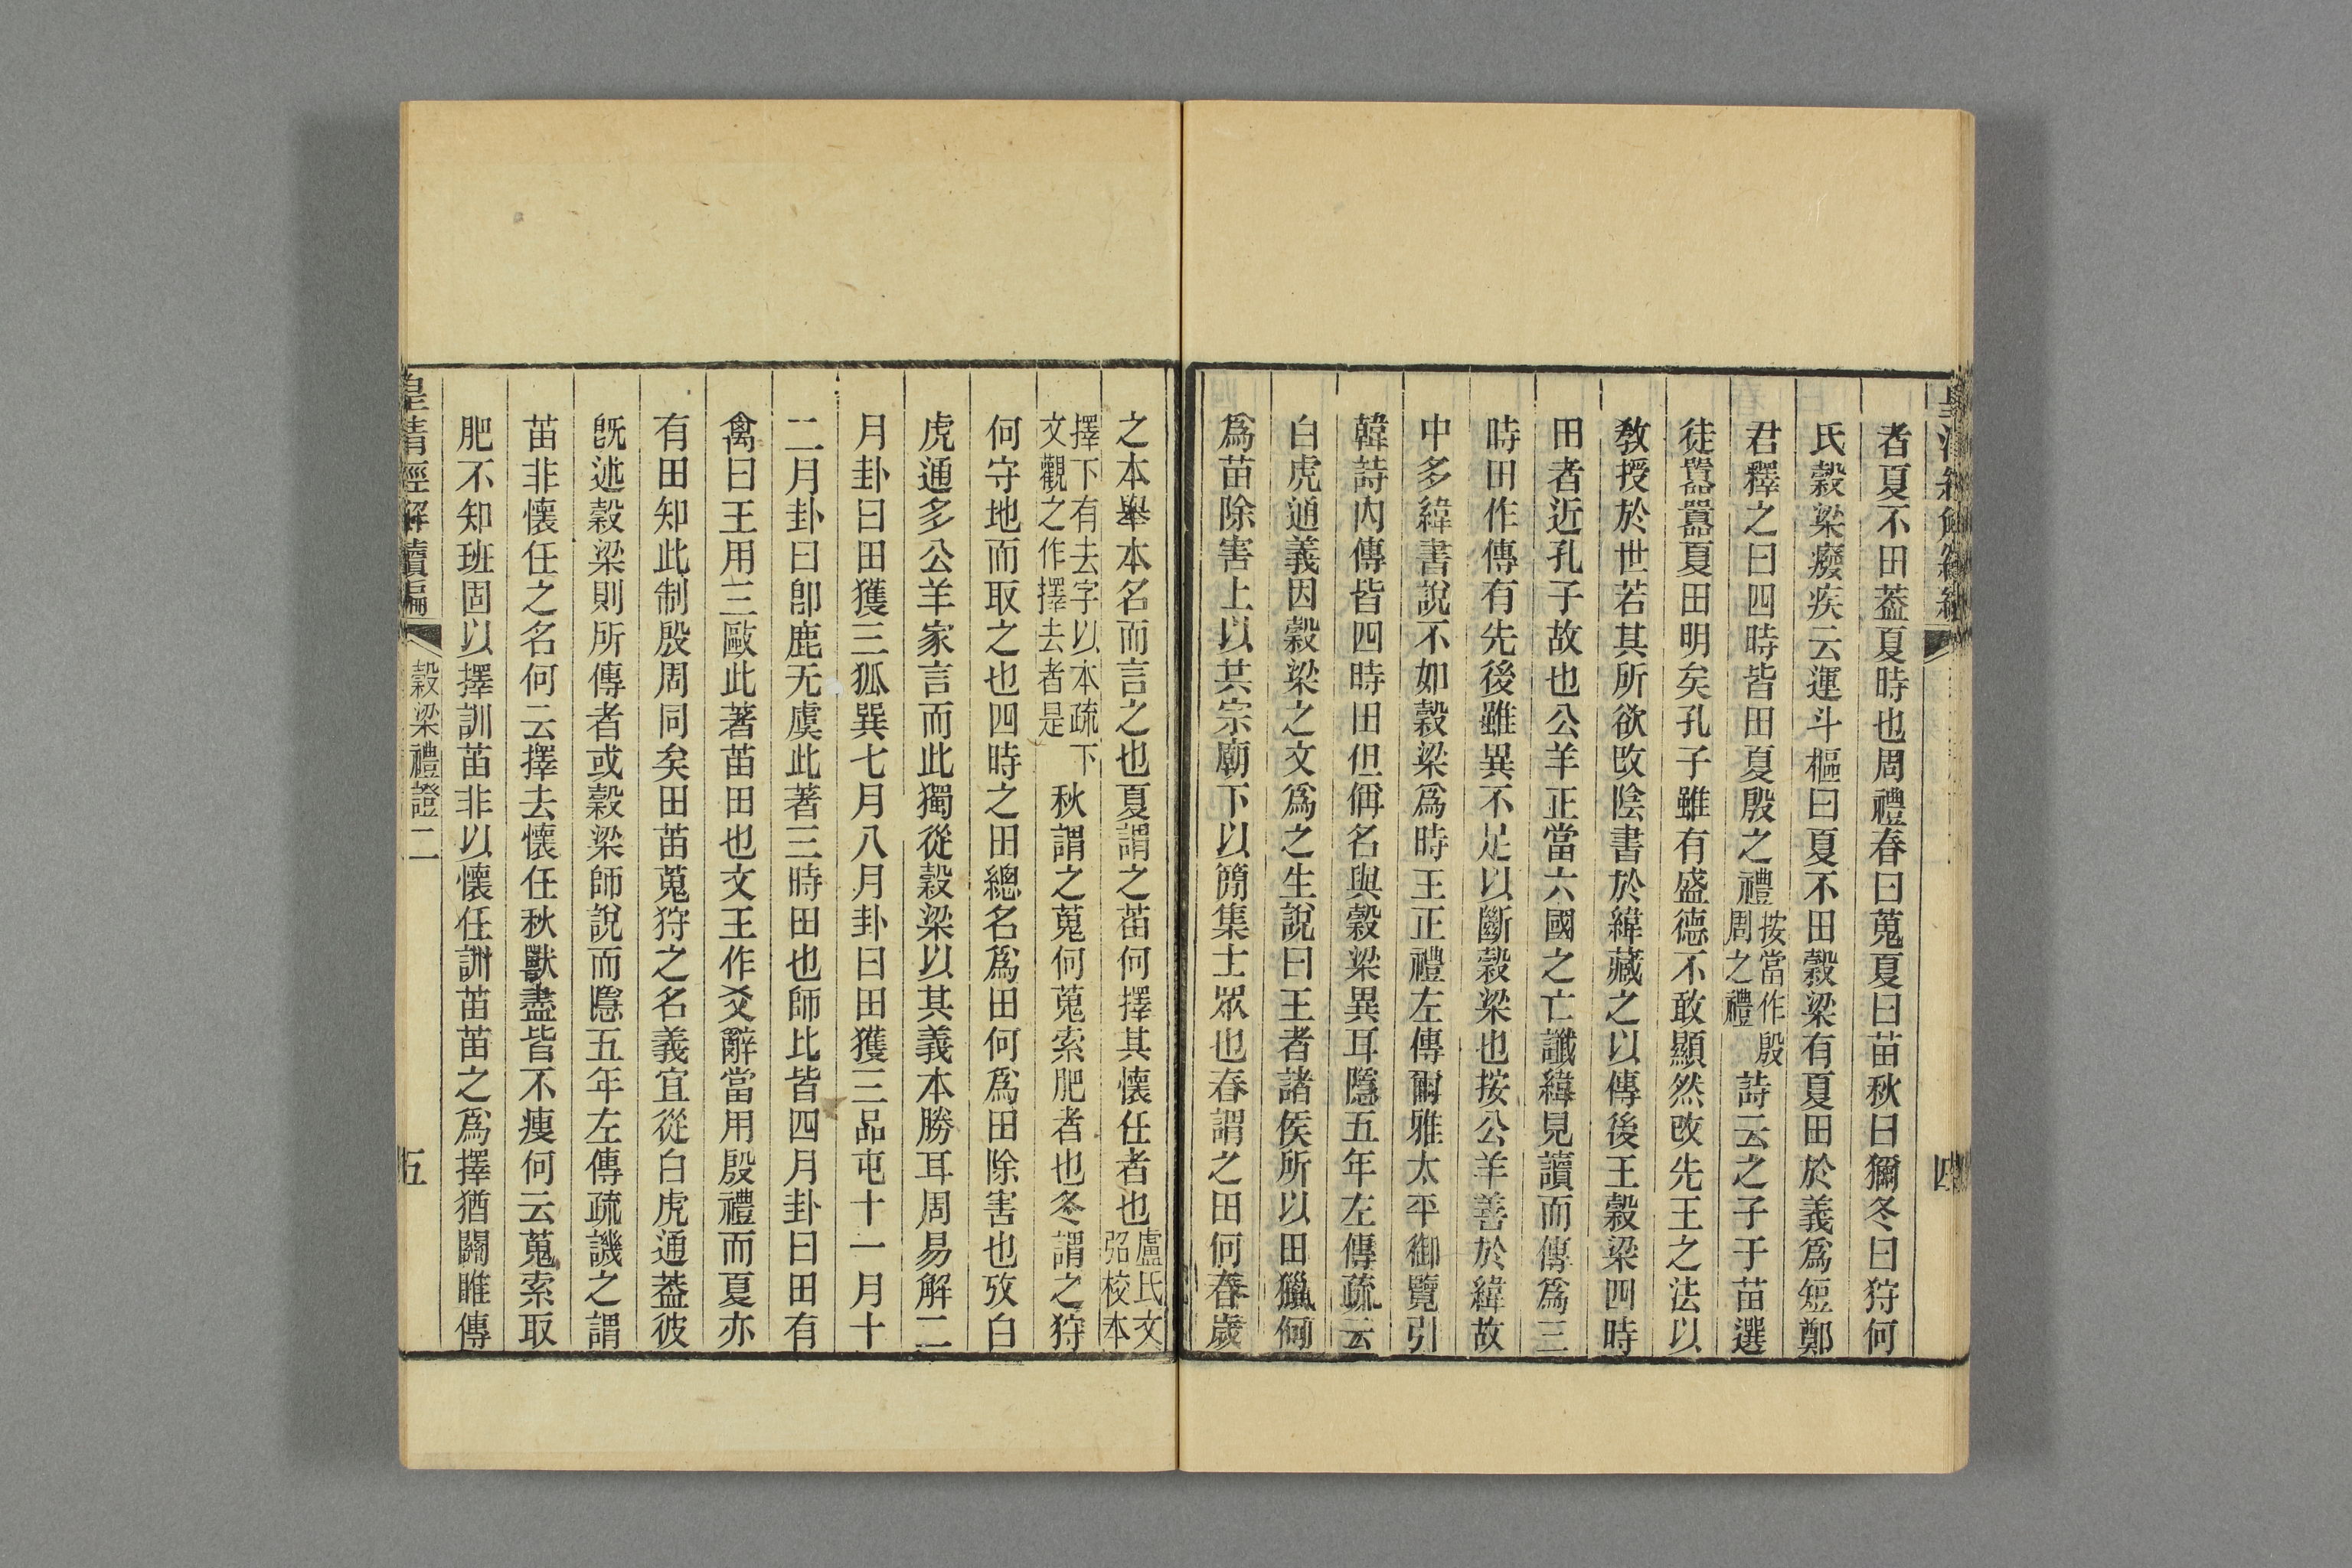 者夏不田葢夏時也周禮春曰蒐夏曰苗秋曰獮冬曰狩何
氏穀梁癈疾云運斗樞曰夏不田穀梁有夏田於義爲短鄭
君釋之曰四時皆田夏殷之禮按當作殷周之禮詩云之子于苗選
徒囂囂夏田明矣孔子雖有盛德不敢顯然改先王之法以
敎授於世若其所欲改陰書於緯藏之以傳後王穀梁四時
田者近孔子故也公羊正當六國之亡讖緯見讀而傳爲三
時田作傳有先後雖異不足以斷穀梁也按公羊善於緯故
中多緯書說不如穀梁爲時王正禮左傳爾雅太平御覽引
韓詩內傳皆四時田但稱名與穀梁異耳隱五年左傳疏云
白虎通義因穀梁之文爲之生說曰王者諸侯所以田獵何
爲苗除害上以其宗廟下以簡集士眾也春謂之田何春歲
之本舉本名而言之也夏謂之苗何擇其懷任者也盧氏文弨校本
擇下有去字以本疏下文觀之作擇去者是秋謂之蒐何蒐索肥者也冬謂之狩
何守地而取之也四時之田總名爲田何爲田除害也攷白
虎通多公羊家言而此獨從穀梁以其義本勝耳周易解二
月卦曰田獲三狐巽七月八月卦曰田獲三品屯十一月十
二月卦曰卽鹿无虞此著三時田也師比皆四月卦曰田有
禽曰王用三毆此著苗田也文王作爻辭當用殷禮而夏亦
有田知此制殷周同矣田苗蒐狩之名義宜從白虎通葢彼
旣述穀梁則所傳者或穀梁師說而隱五年左傳疏譏之謂
苗非懷任之名何云擇去懷任秋獸盡皆不瘦何云蒐索取
肥不知班固以擇訓苗非以懷任訓苗苗之爲擇猶關雎傳
皇清經解續編 穀梁禮證二 五